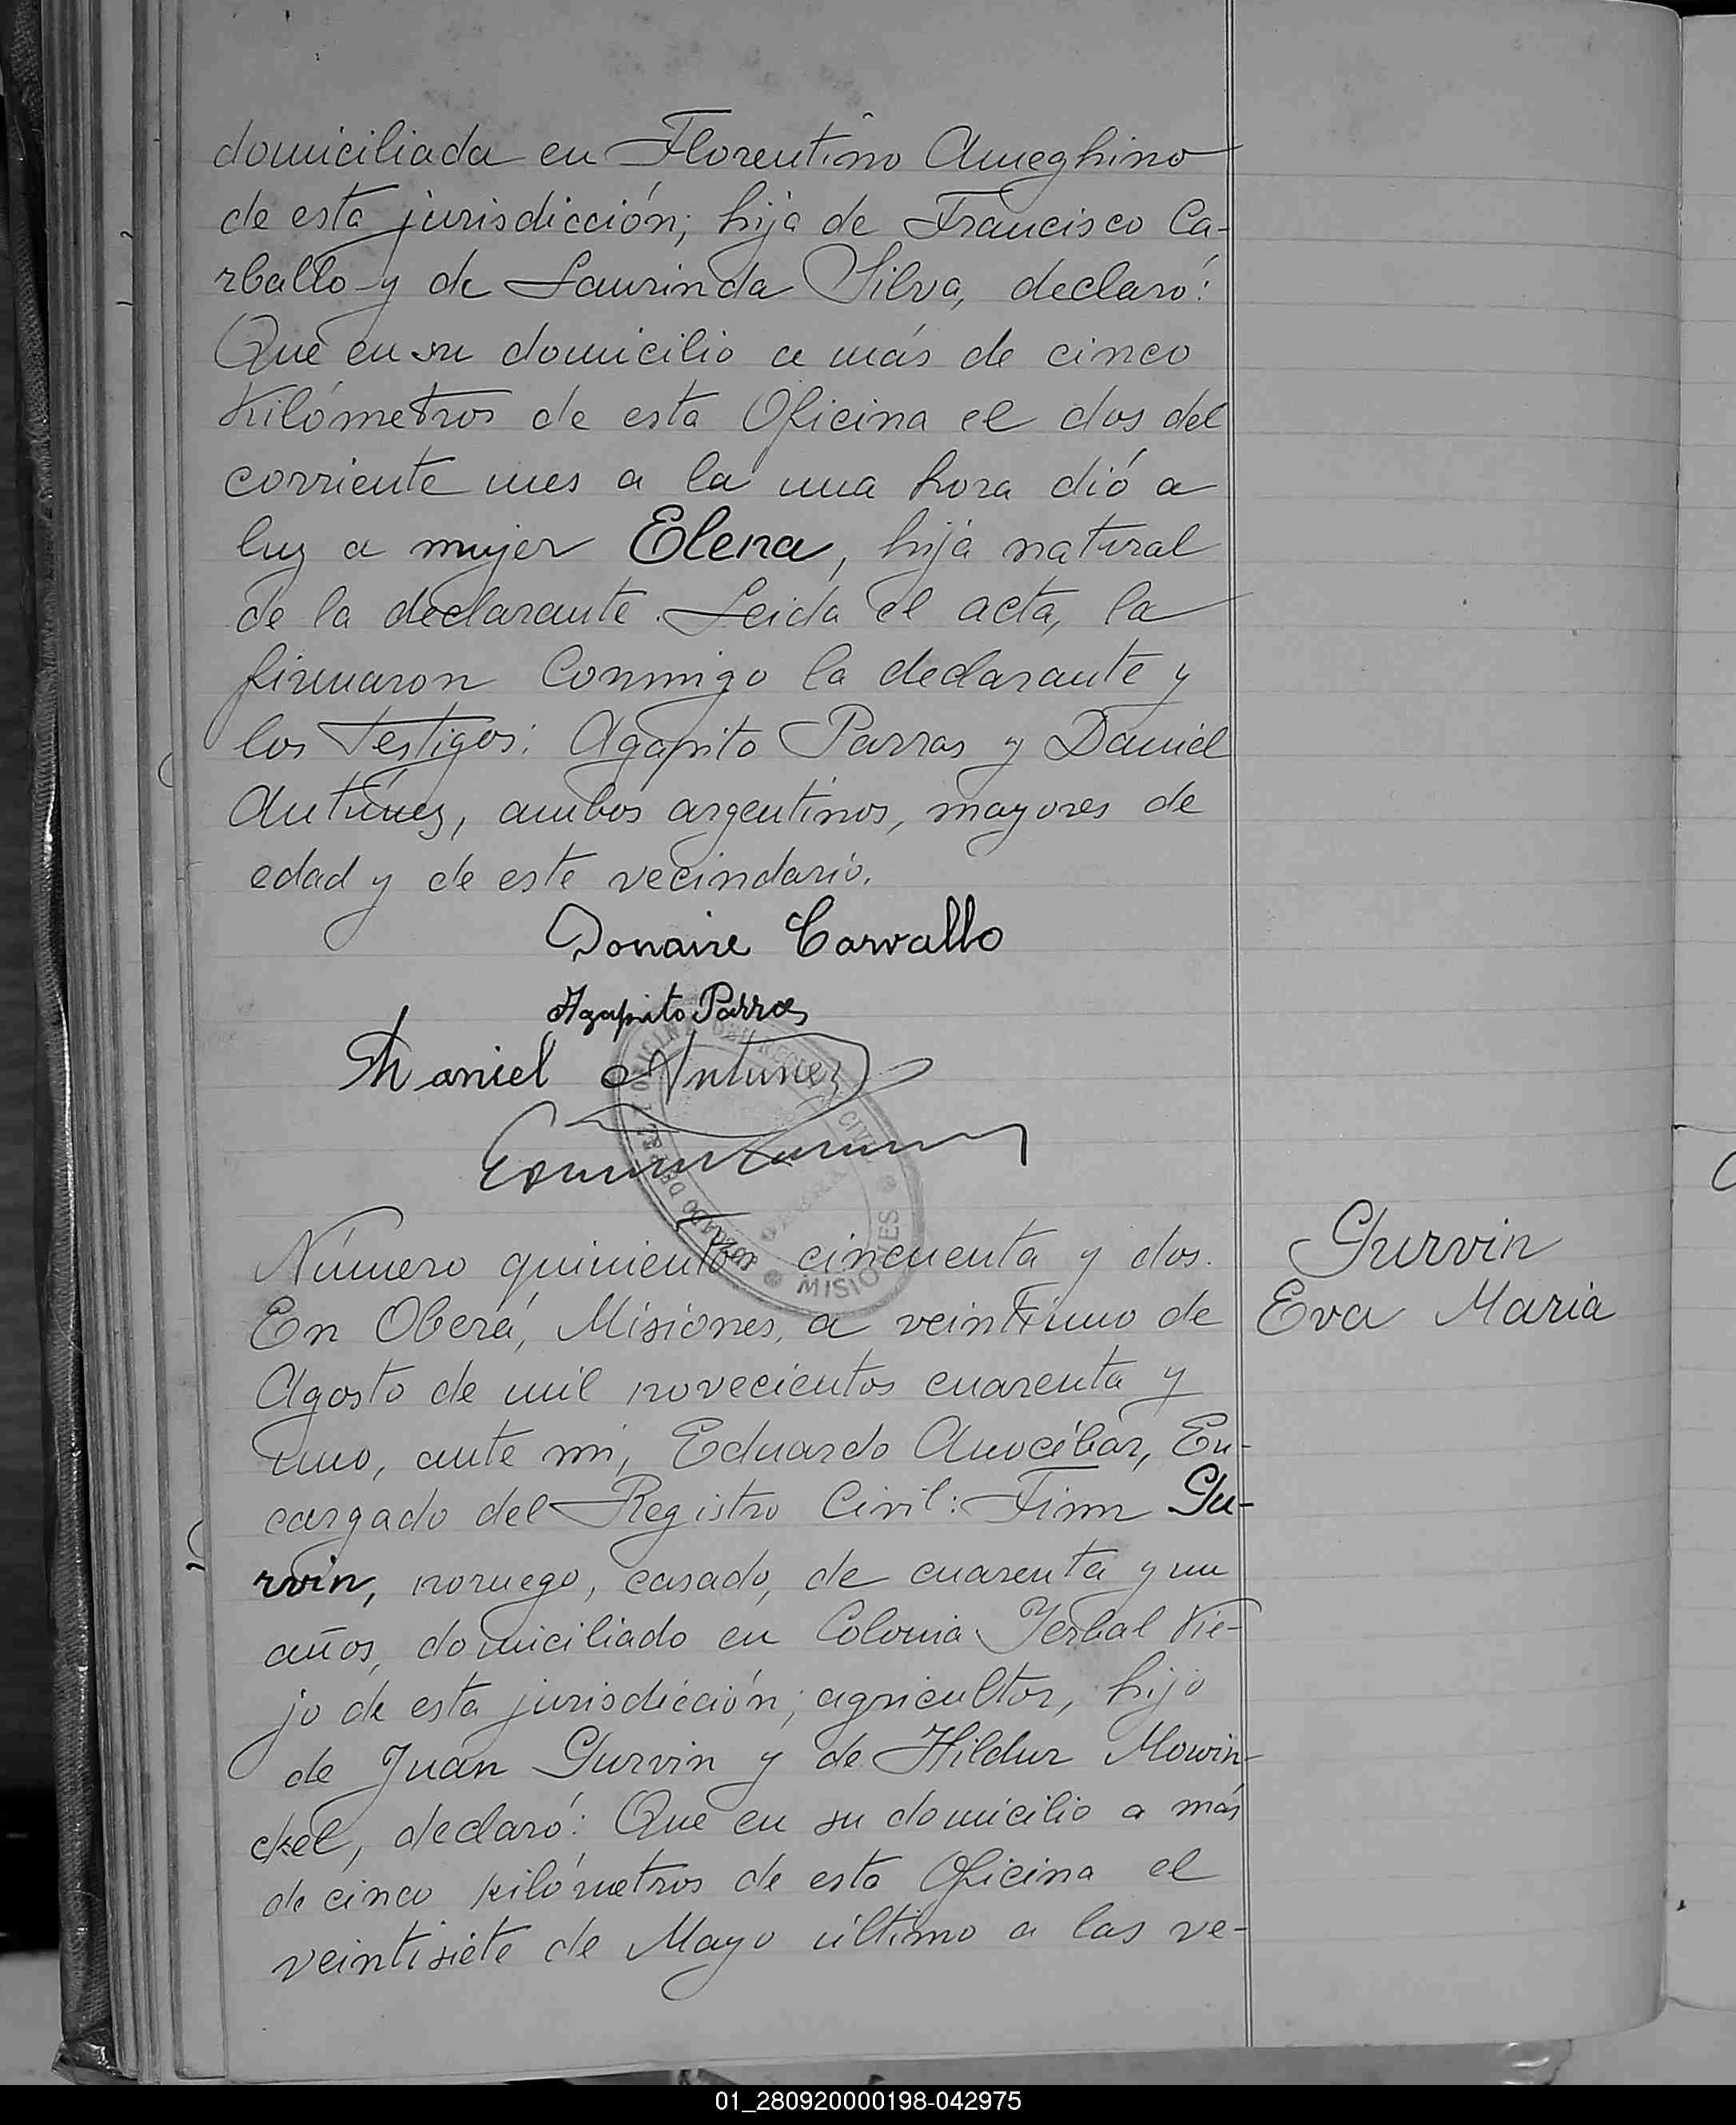 domiciliada en Florentino Ameghino
de esta jurisdicción; hija de Francisco Ca-
rballo y de Laurinda Silva, declaró:
Que en su domicilio a más de cinco
Kilómetros de esta Oficina el dos del
corriente mes a la una hora dió a
luz a mujer Elena, hija natural
de la declarante. Leida el acta, la
firmaron Conmigo la declarante y
los Testigos: Agapito Parras y Daniel
Antúnez, ambos argentinos, mayores de
edad y de este vecindario.
Donaire Carvallo
Agapito Parras
Daniel Antunez
OFICINA DEL REGISTRO CIVIL
MISIONES
Número quinientos cincuenta y dos.
En Oberá, Misiones, a veintiuno de
Agosto de mil novecientos cuarenta y
uno, ante mi, Eduardo Anocíbar, En-
cargado del Registro Civil: Finn Gu-
rvin, noruego, casado, de cuarenta y un
años, domiciliado en Colonia Yerbal Vie-
jo de esta jurisdicción; agricultor, hijo
de Juan Gurvin y de Hildur Mowin-
ckel, declaró: Que en su domicilio a más
de cinco kilómetros de esta Oficina el
veintisiete de Mayo último a las ve-
Gurvin
Eva Maria
01_280920000198-042975